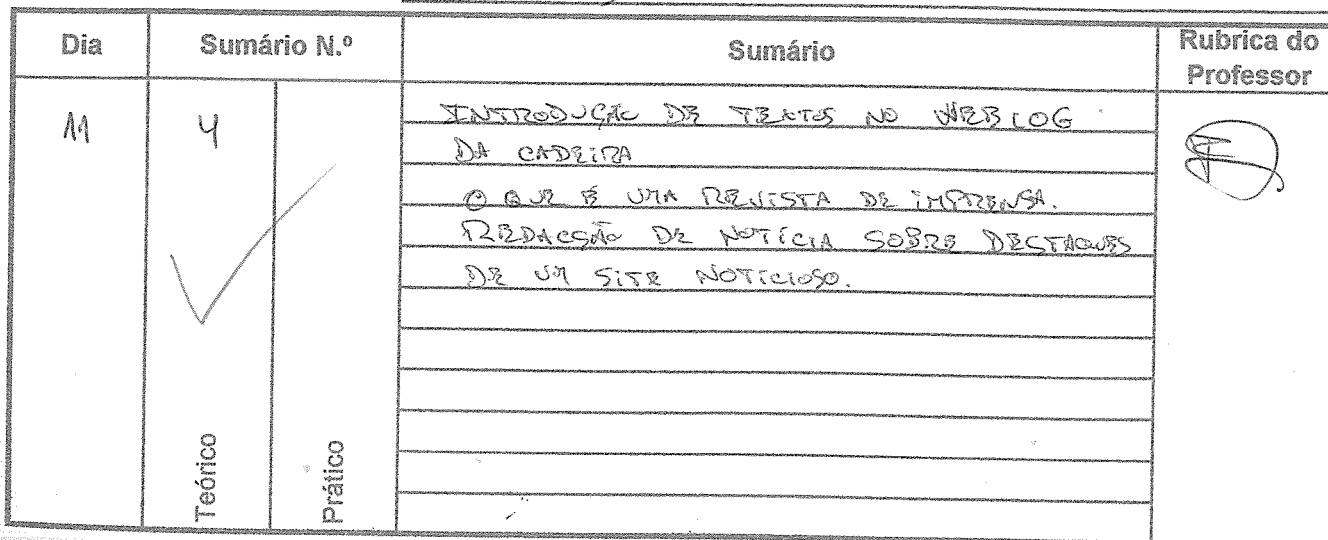 Dia Sumário N.º Sumário Rubrica do Professor
11 4
INTRODUÇÃO DE TEXTOS NO WEBLOG
DA CADEIRA
O QUE É UMA REVISTA DE IMPRENSA.
REDACSÃO DE NOTÍCIA SOBRE DESTAQUES
DE UM SITE NOTICIOSO.
Teórico
Prático